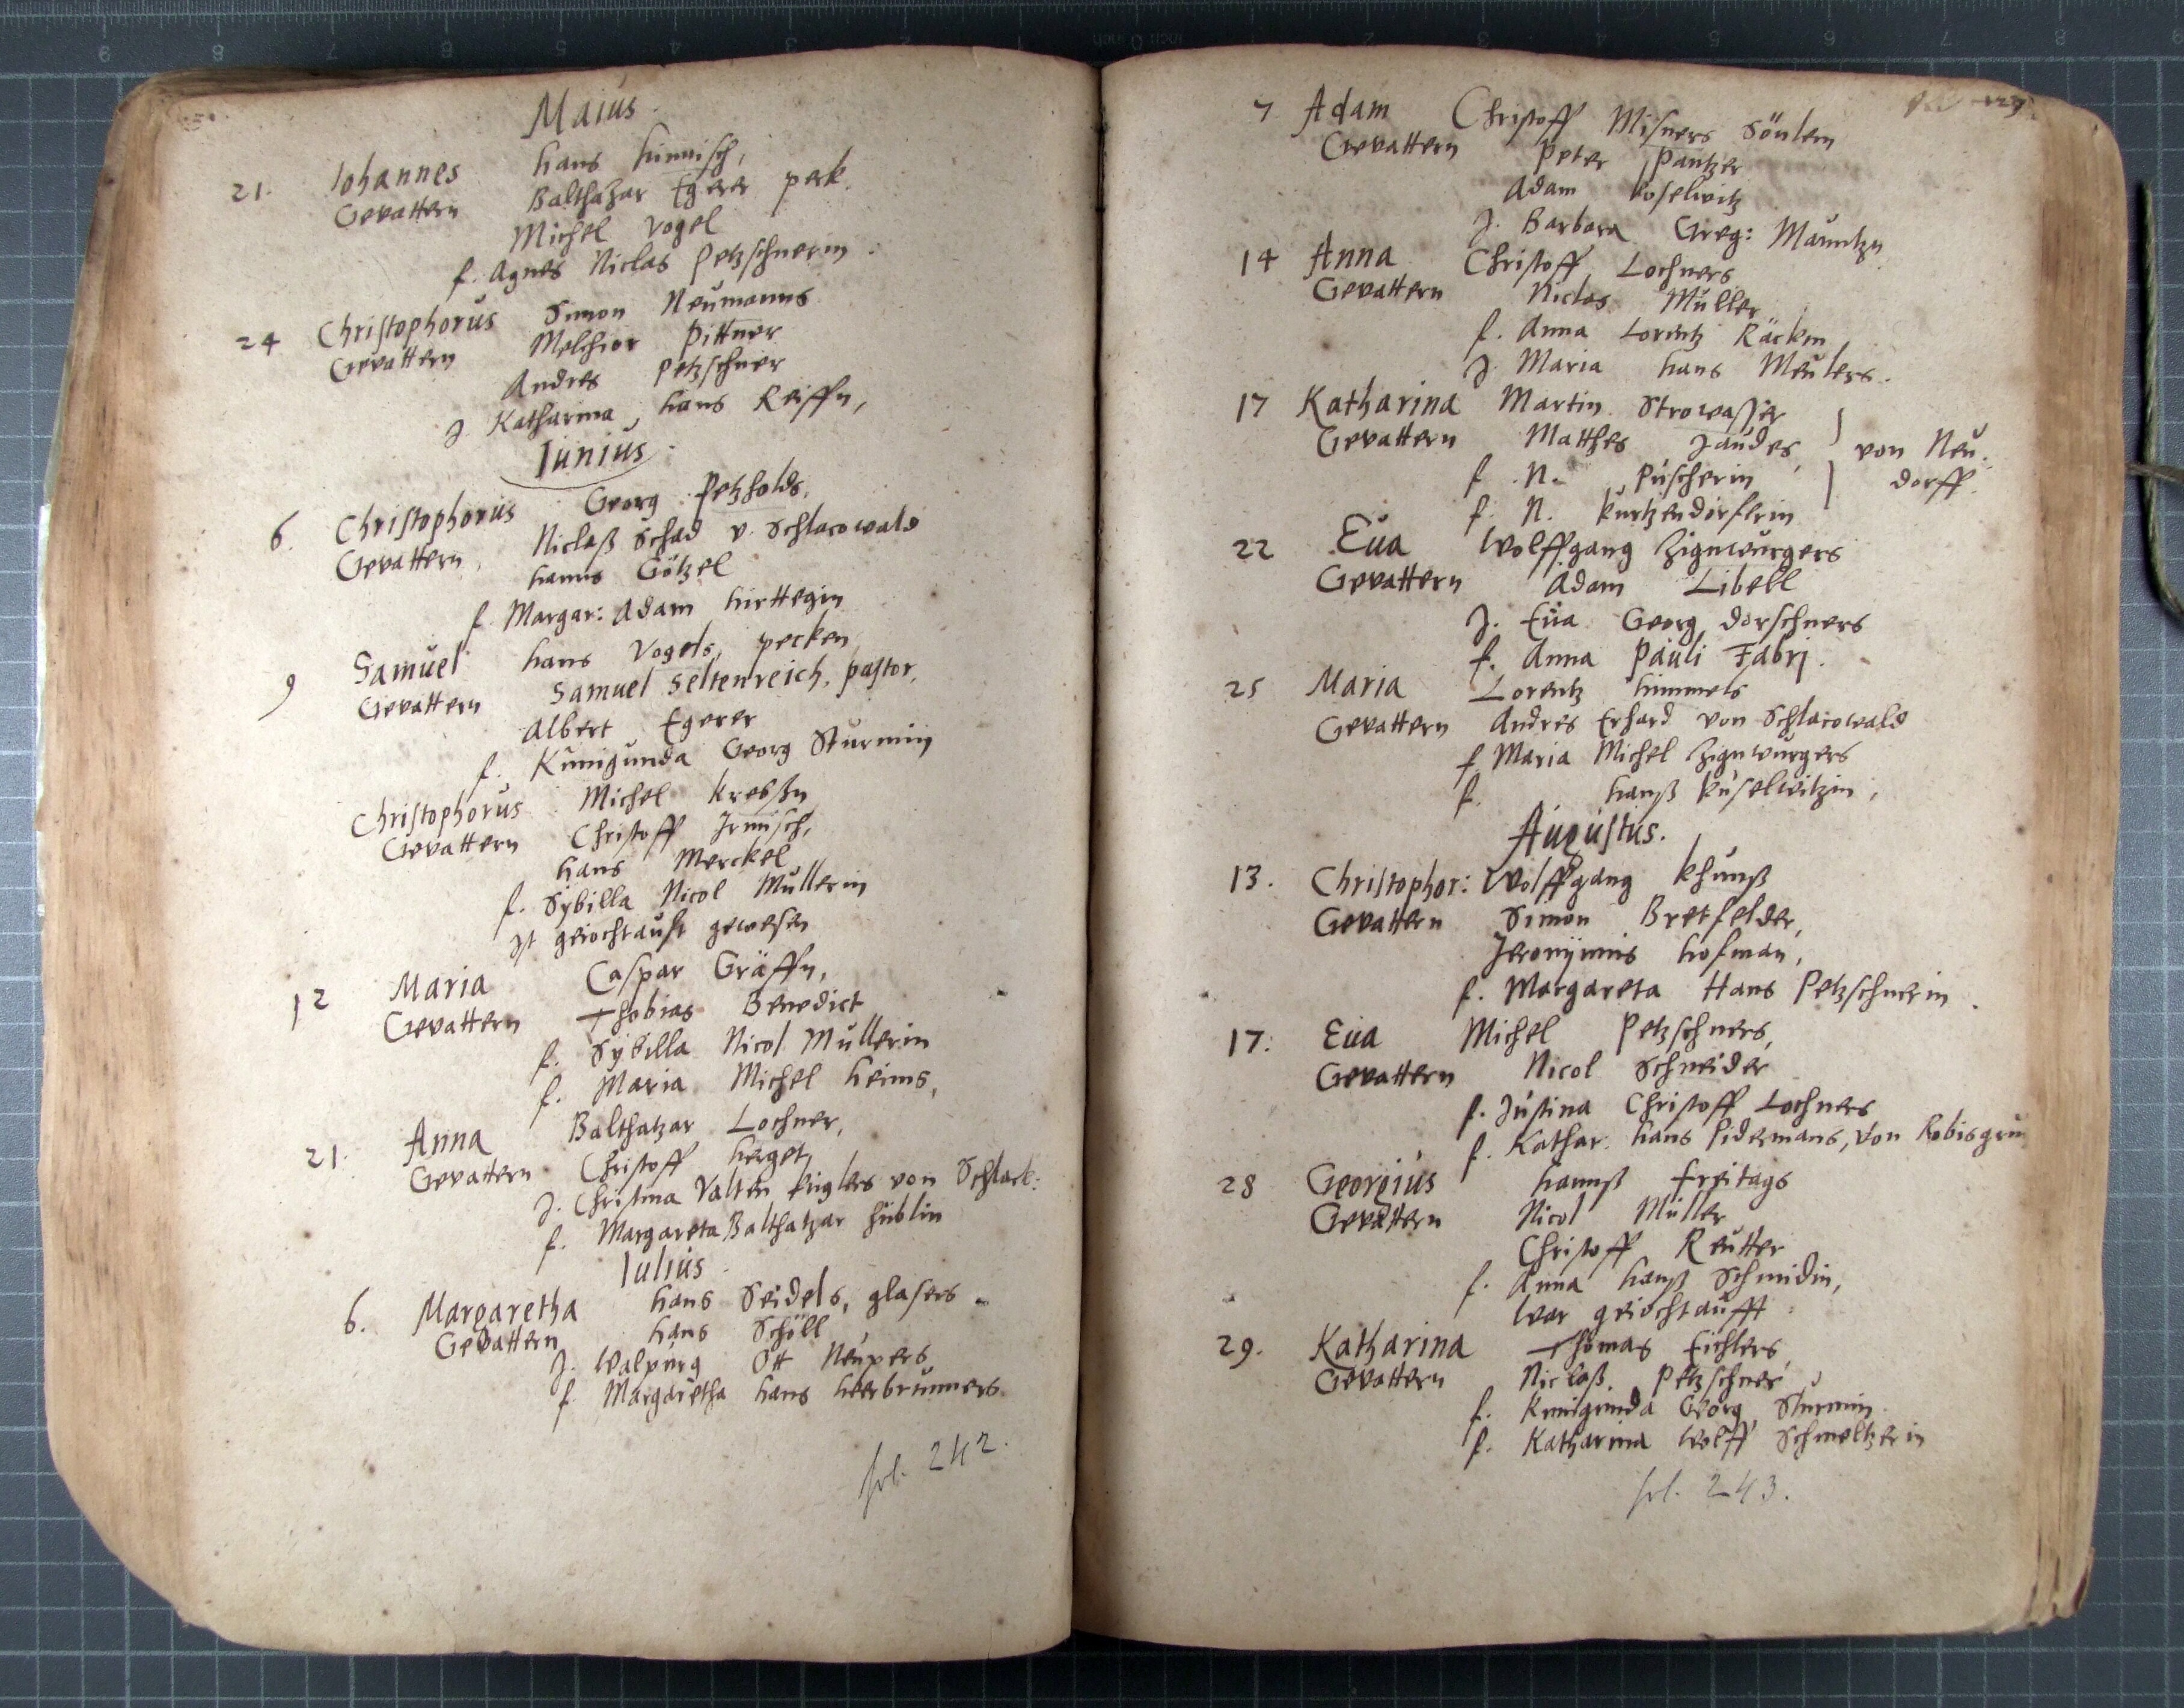 Maius.
21. Johannes Hans Hinnisch,
Gevattern Balthazar Egerer pek.
Michel Vogel
f. Agnes Niclas Petzschnerin.
24 Christophorus Simon Neumanns
Gevattern Melchior Pittner
Andres Petzschner
J. Katharina Hans Reiffn,
Junius.
6. Christophorus Georg Petzholds,
Gevattern, Niclaß Schad v. Schlacowald
Hanns Götzel
f. Margar: Adam Hirttegin
9 Samuel Hans Vogels, pecken
Gevattern Samuel Seltenreich, pastor,
Albert Egerer
f. Kunigunda Georg Sturmin
Christophorus Michel Krebßn
Gevattern Christoff Irmisch,
Hans Merckel
f. Sybilla Nicol Mullerin
Jst geiochtauft gewesen
12 Maria Caspar Gräffn,
Gevattern Thobias Benedict
f. Sybilla Nicol Mullerin
f. Maria Michel Heims,
21. Anna Balthatzar Lochner,
Gevattern Christoff Herget,
J. Christina Valten Kuglers von Schlack:
f. Margareta Balthatzar Hüblin
Julius.
6. Margaretha Hans Seidels, glasers
Gevattern Hans Schöll
J. Walpurg Ott Neupers
f. Margaretha Hans Heerbrunners
fol. 242.
7 Adam Christoff Misners
Gevattern Peter Pantzer
Adam Koselwitz
J. Barbara Greg: Mauntzn
14 Anna Christoff Lochners
Gevattern Niclas Müller
f. Anna Lorentz Räckin
J. Maria Hans Meulers.
17 Katharina Martin Strowasser
Gevattern Matthes Jaudes, von Neu:
f. N. Püscherin dorff.
f. N. Kurtzendörflerin
22 Eua Wolffgang Zignwurgers
Gevattern Adam Libell
J. Eua Georg Dorschners
f. Anna Pauli Fabrj.
25 Maria Lorentz Himmels
Gevattern Andres Erhard von Schlacowald
f Maria Michel Zignwurgers
f. Hanß Kuselwitzin,
Augustus.
13. Christophor: Wolffgang Khunß
Gevattern Simon Bretfelder,
Jeronÿmus Hofman,
f. Margareta Hans Petzschnerin.
17. Eua Michel Petzschners,
Gevattern Nicol Schneider
f. Justina Christoff Lochners
f. Kathar. Hans Pidermans, von Robisgru
28 Georgius Hannß Freitags
Gevattern Nicol Müller
Christoff Reutter
f. Anna Hanß Schmidin,
War geiochtaufft.
29. Katharina Thomas Eichlers,
Gevattern Niclaß Petzschner,
f. Kunigunda Georg Sturmin.
f. Katharina Wolff Schmeltzerin
fol. 243.